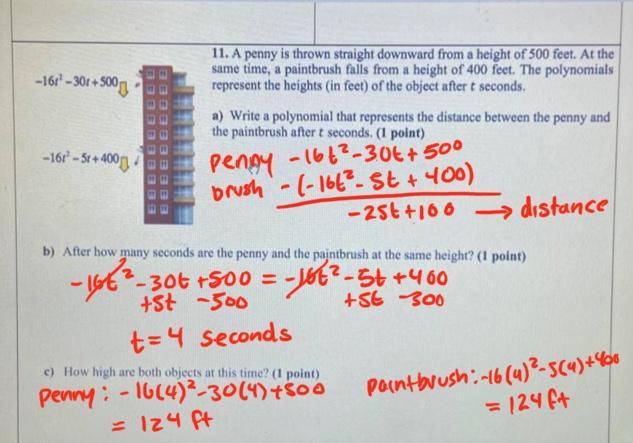 11. A penny is thrown straight downward from a height of 500 feet. At the
same time, a paintbrush falls from a height of 400 feet. The polynomials
represent the heights (in feet) of the object after t seconds.
-16t² -30t + 500
a) Write a polynomial that represents the distance between the penny and
the paintbrush after t seconds. (1 point)
-16t² - 5t + 400
penny -16t² -30t + 500
brush - (-16t² - 5t + 400)
-25t +100 → distance
b) After how many seconds are the penny and the paintbrush at the same height? (1 point)
-16t² -30t +500 = -16t² -5t +400
+5t -500 +5t -300
t = 4 seconds
c) How high are both objects at this time? (1 point)
penny: -16(4)² -30(4) +500
= 124 ft
paintbrush: -16(4)² -5(4) +400
= 124 ft